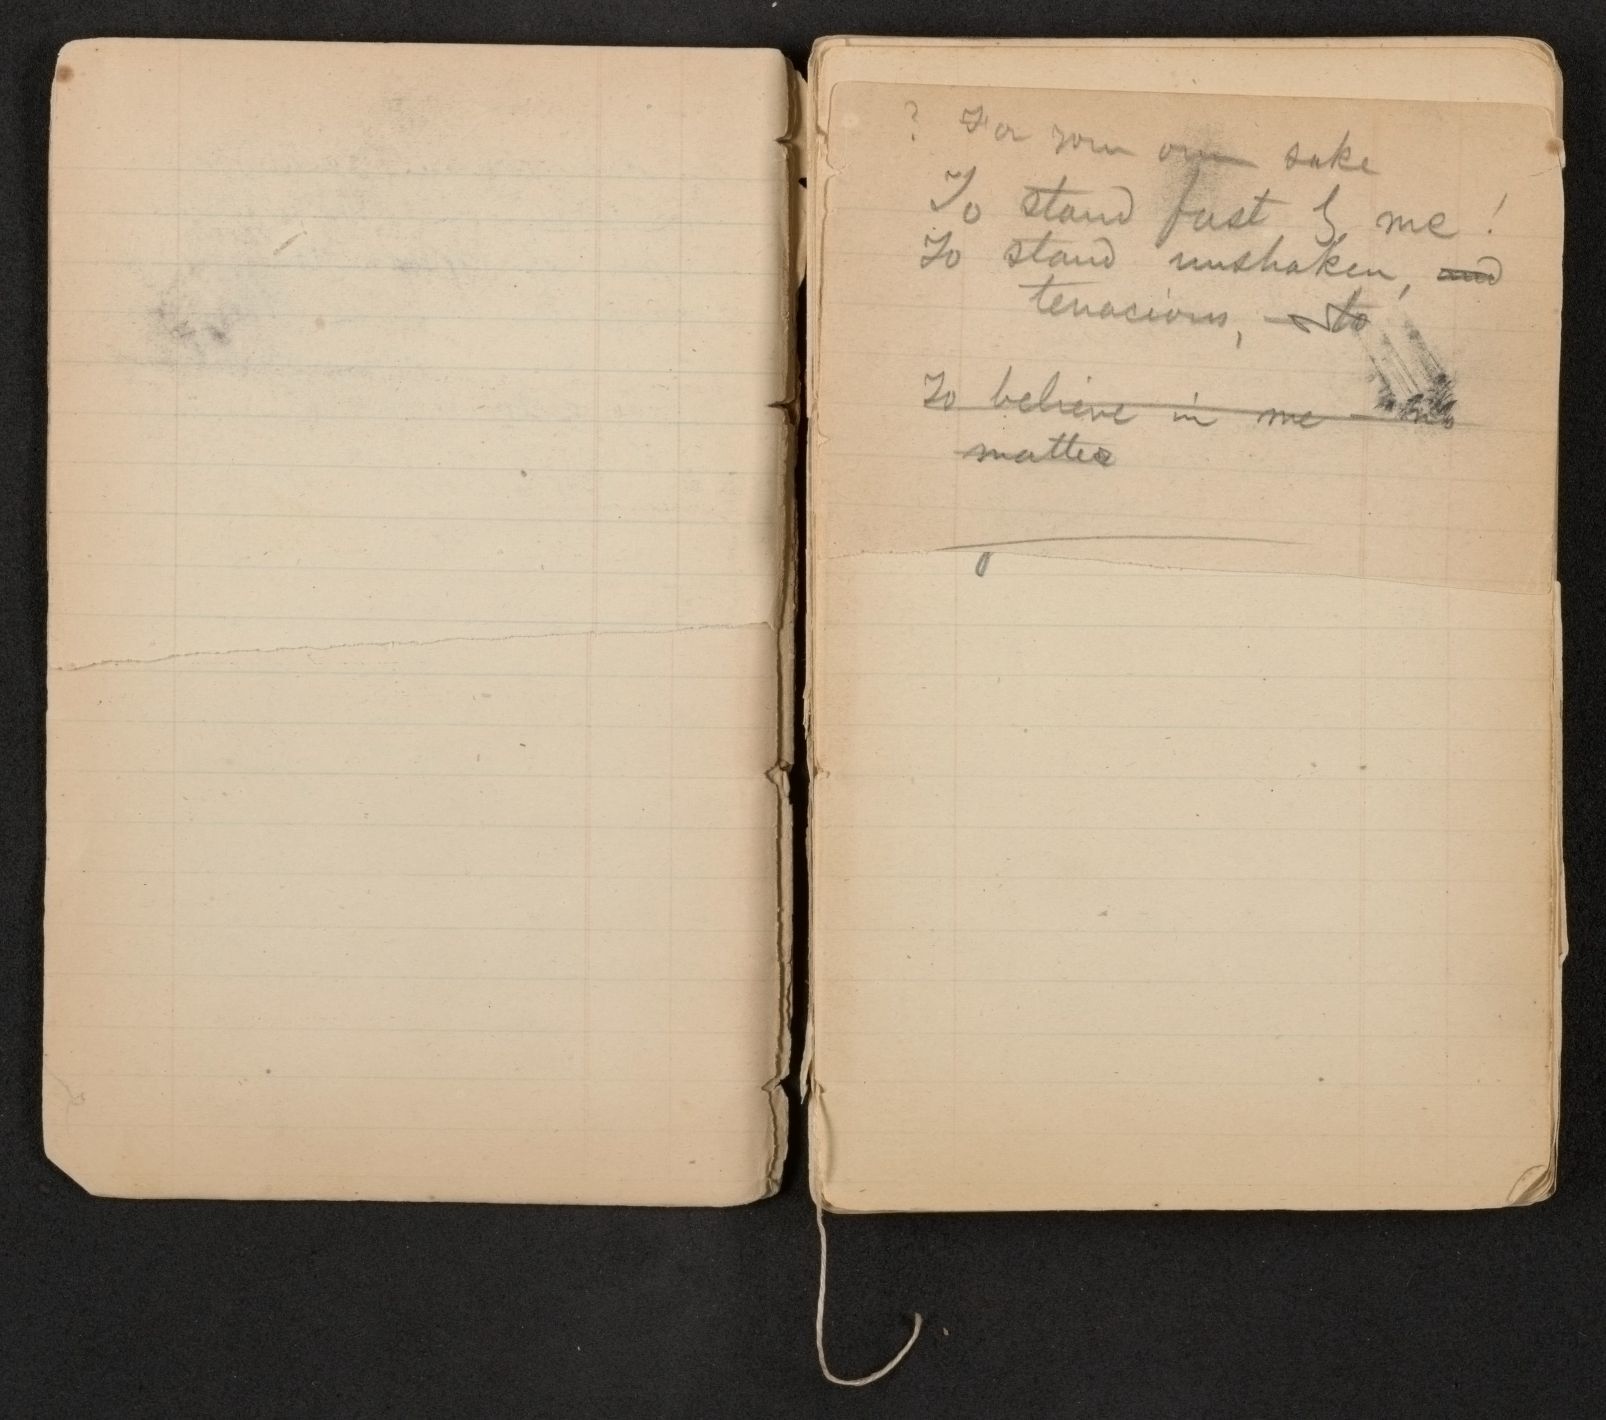 ? For your own sake
To stand fast by me!
To stand unshaken, and
tenacious, to
To believe in me — no
matter